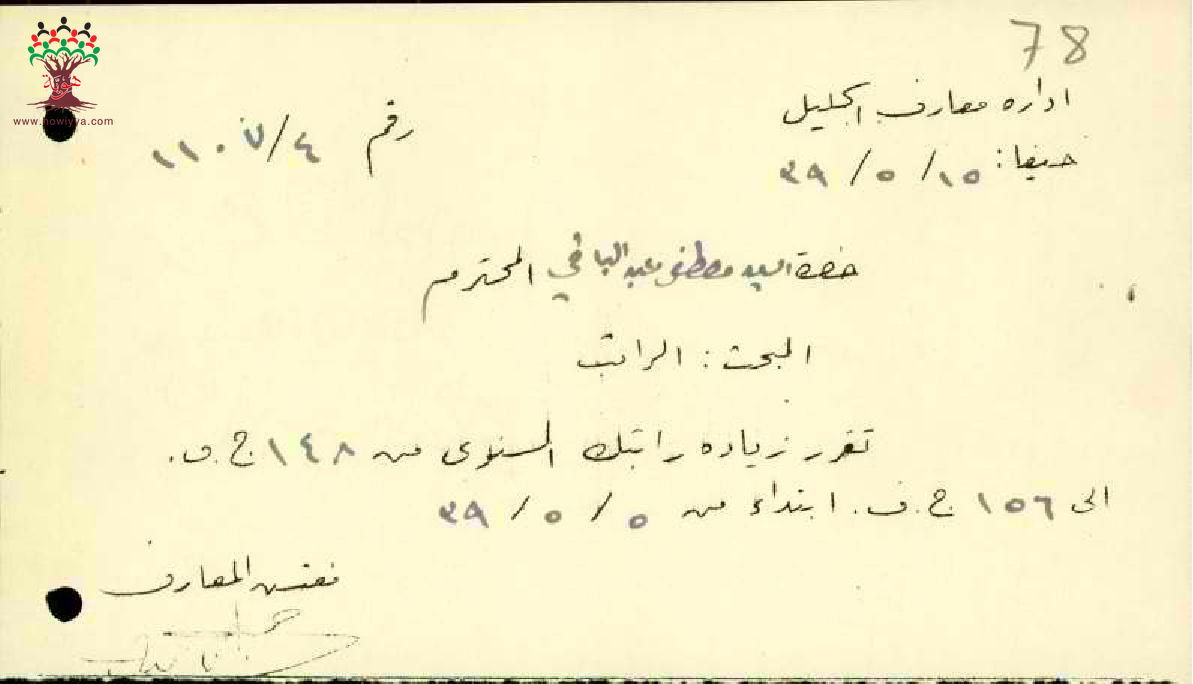 78
اداره معارف الجليل
رقم ٤/١١٠٧
حيفا: ١٥/٥/٣٩
حضرة السيد مصطفى عبد الباقي المحترم
المبحث: الراتب
تقرر زياده راتبك السنوى من ١٤٨ ج.ف.
الى ١٥٦ ج.ف. ابتداء من ٥/٥/٣٩
مفتش المعارف
هوية
www.howiyya.com